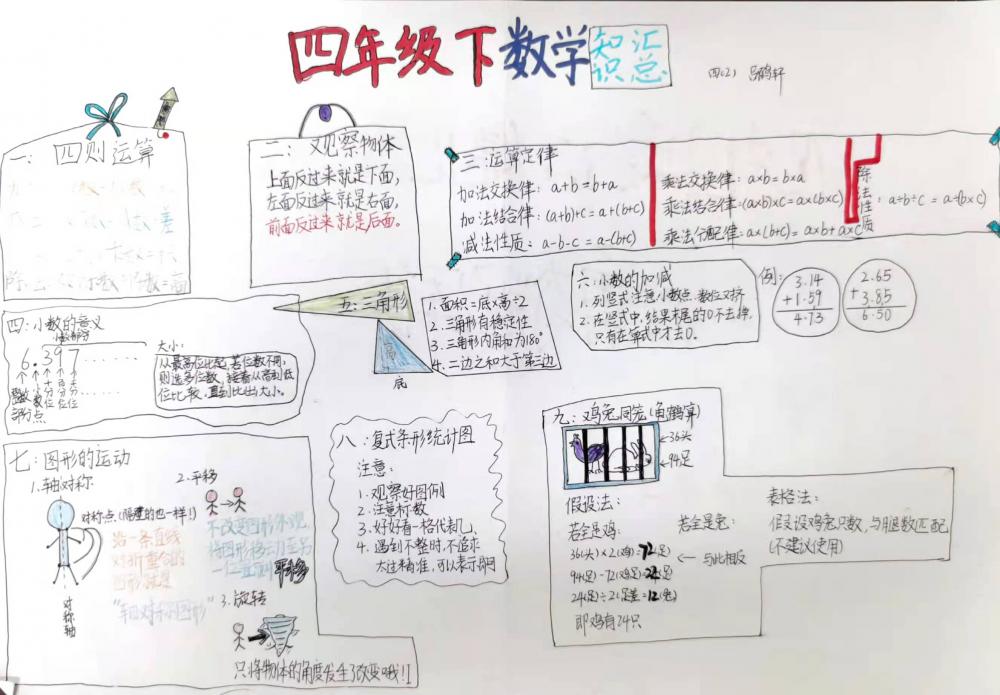 四年级下数学
知识汇总
四(2) 吕鹤轩
一：四则运算
二：观察物体
上面反过来就是下面，
左面反过来就是右面，
前面反过来就是后面。
三：运算定律
加法交换律：a+b=b+a
加法结合律：(a+b)+c=a+(b+c)
减法性质：a-b-c=a-(b+c)
乘法交换律：a×b=b×a
乘法结合律：(a×b)×c=a×(b×c)
乘法分配律：a×(b+c)=a×b+a×c
除法性质：a÷b÷c=a÷(b×c)
四：小数的意义
小数部分
6.397......
十百千
整数部分
小数点
分分分
位位位
大小：
从最高位比起，若位数不同，
则选多位数，接着从高到低
位比较，直到比出大小。
五：三角形
高
底
1.面积=底×高÷2
2.三角形有稳定性
3.三角形内角和为180°
4.二边之和大于第三边
六：小数的加减
1.列竖式注意小数点、数位对齐
2.在竖式中，结果末尾的0不去掉，
只有在算式中才去0。
例：
3.14
+1.59
4.73
2.65
+3.85
6.50
七：图形的运动
1.轴对称
对称点(隔壁的也一样！)
沿一条直线
对折重合的
图形就是
"轴对称图形"
对称轴
2.平移
不改变图形外观，
平移
3.旋转
只将物体的角度发生了改变哦！！
八：复式条形统计图
注意：
1.观察好图例
2.注意标数
3.好好看一格代表几
4.遇到不整时，不追求
太过精准，可以表示即可
九：鸡兔同笼(龟鹤算)
36头
94足
假设法：
若全是鸡：
36(头)×2(鸡)=72(足)
94(足)-72(鸡足)=22(足)
24(足)÷2(足差)=12(兔)
即鸡有24只
若全是兔：
与此相反
表格法：
假设鸡兔只数，与腿数匹配
(不建议使用)